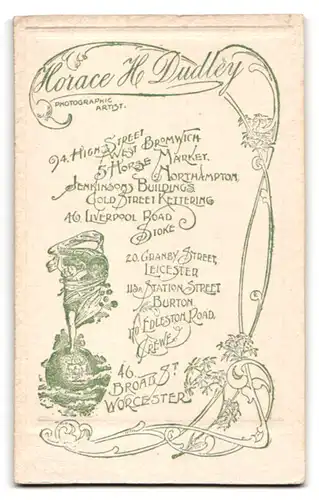 Horace H Dudley
PHOTOGRAPHIC
ARTIST.
94. HIGH STREET
WEST BROMWICH
5 HORSE MARKET.
NORTHAMPTON
JENKINSONS BUILDINGS
GOLD STREET KETTERING
46. LIVERPOOL ROAD
STOKE
20. GRANBY STREET,
LEICESTER
113A STATION STREET
BURTON
170 EDLESTON ROAD,
CREWE
46.
BROAD ST
WORCESTER